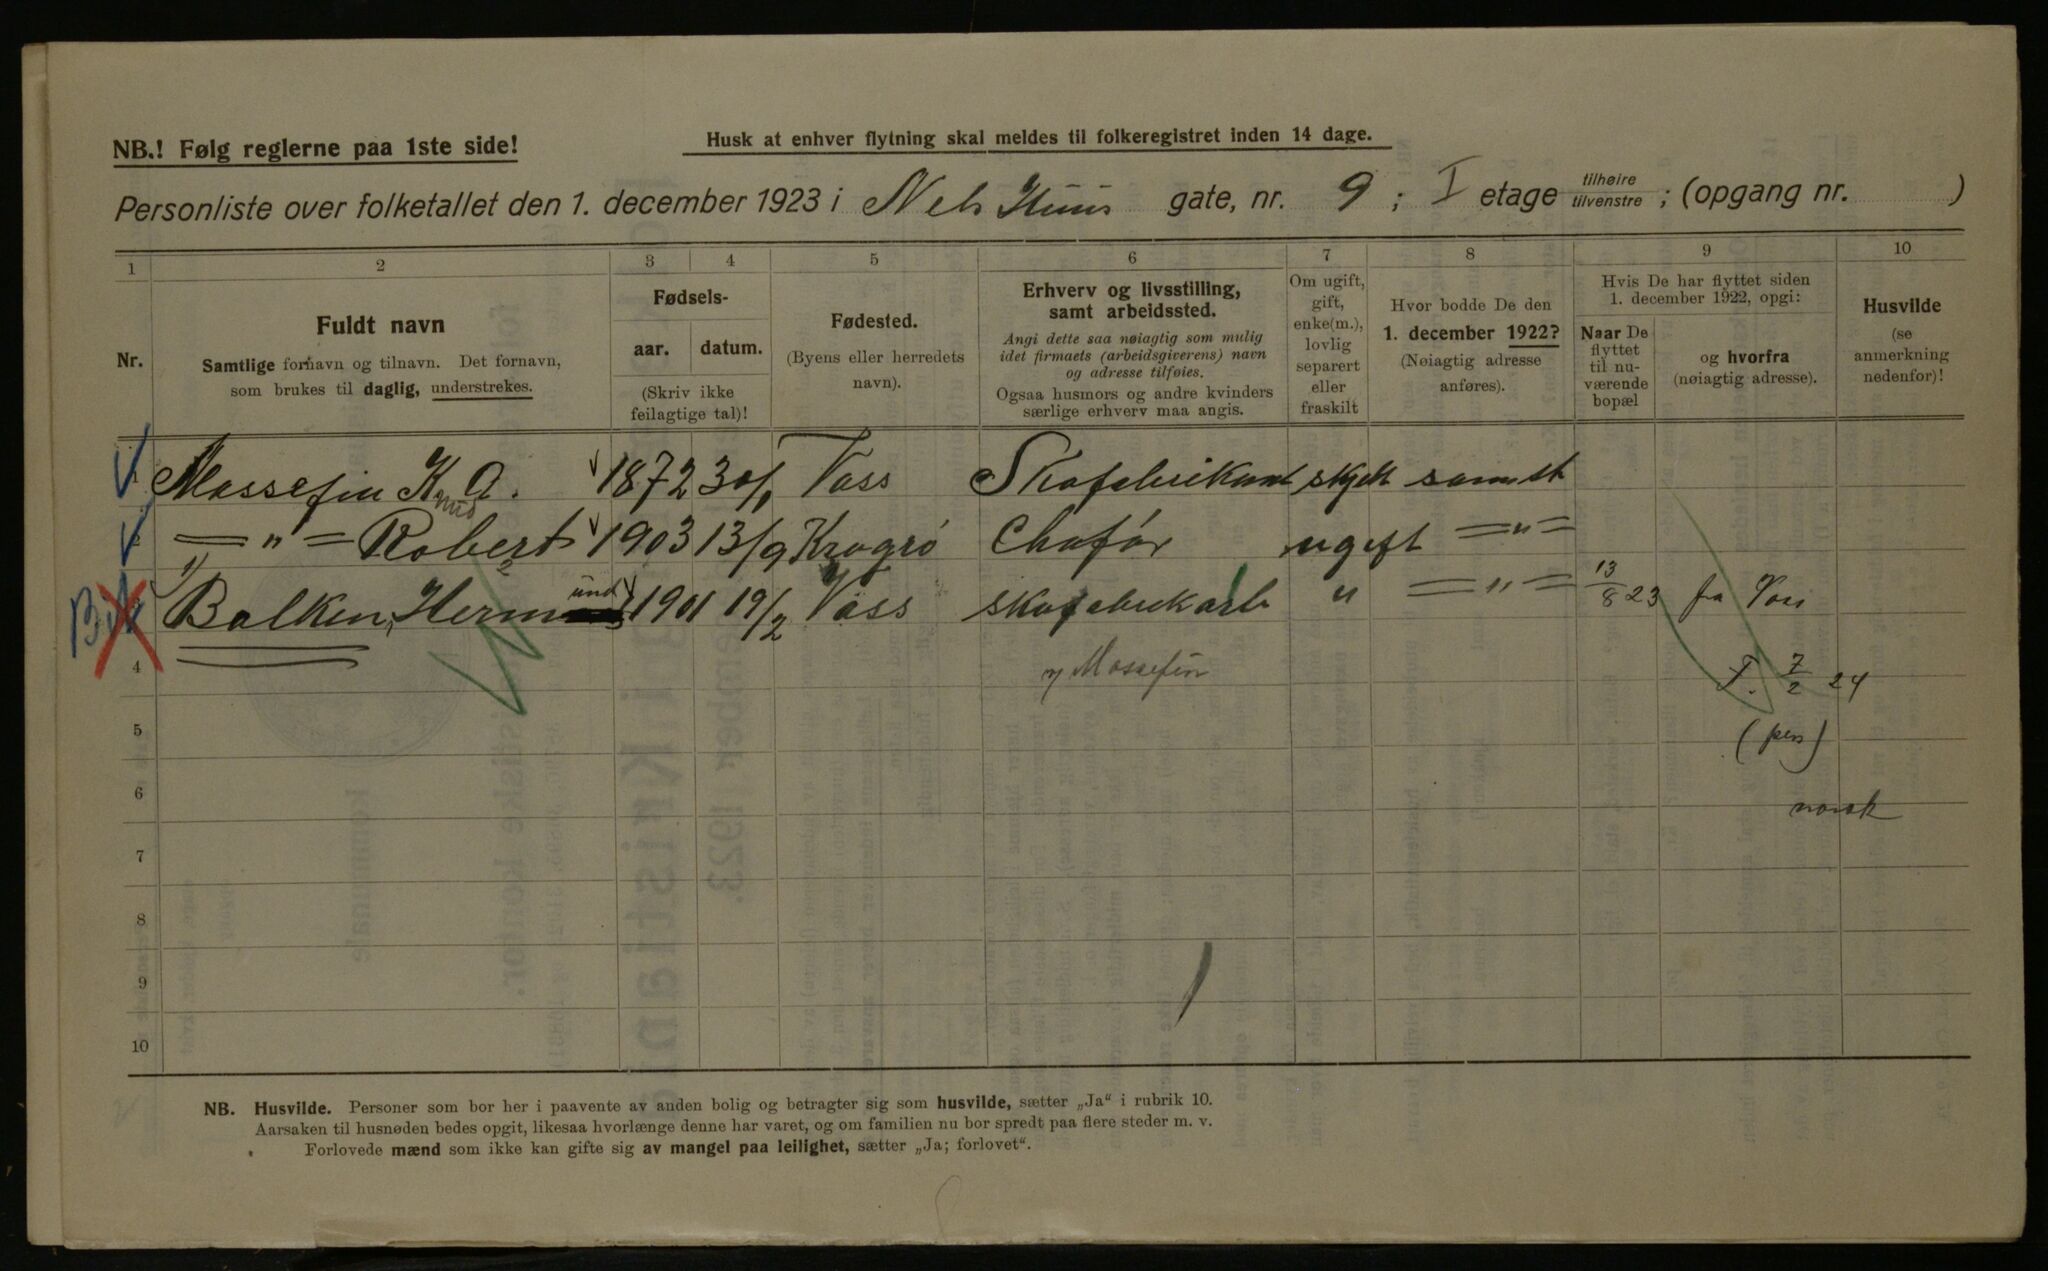 NB.! Følg reglerne paa 1ste side!
Husk at enhver flytning skal meldes til folkeregistret inden 14 dage.
Personliste over folketallet den 1. december 1923 i Nels Huus gate, nr. 9 ; I etage tilhøire tilvenstre ; (opgang nr. )
1 2 3 4 5 6 7 8 9 10
Nr.
Fuldt navn
Samtlige fornavn og tilnavn. Det fornavn,
som brukes til daglig, understrekes.
Fødsels-
aar. datum.
(Skriv ikke
feilagtige tal)!
Fødested.
(Byens eller herredets
navn).
Erhverv og livsstilling,
samt arbeidssted.
Angi dette saa nøiagtig som mulig
idet firmaets (arbeidsgiverens) navn
og adresse tilføies.
Ogsaa husmors og andre kvinders
særlige erhverv maa angis.
Om ugift,
gift,
enke(m.),
lovlig
separert
eller
fraskilt
Hvor bodde De den
1. december 1922?
(Nøiagtig adresse
anføres).
Hvis De har flyttet siden
1. december 1922, opgi:
Naar De
flyttet
til nu-
værende
bopæl
og hvorfra
(nøiagtig adresse).
Husvilde
(se
anmerkning
nedenfor)!
Massefin K. A. 1872 30/1 Vass Skofabrikant skjelt samst
nud
= " = Robert 1903 13/9 Kragrø Chafør ugift = " =
Balken, Herm und 1901 19/2 Vass skofabrikarb " = " = 13/8 23 fra Voss
4 Massefin F. 7/2 24
5 (pen)
6 norsk
7
8
9
10
NB. Husvilde. Personer som bor her i paavente av anden bolig og betragter sig som husvilde, sætter „Ja“ i rubrik 10.
Aarsaken til husnøden bedes opgit, likesaa hvorlænge denne har varet, og om familien nu bor spredt paa flere steder m. v.
Forlovede mænd som ikke kan gifte sig av mangel paa leilighet, sætter „Ja; forlovet“.